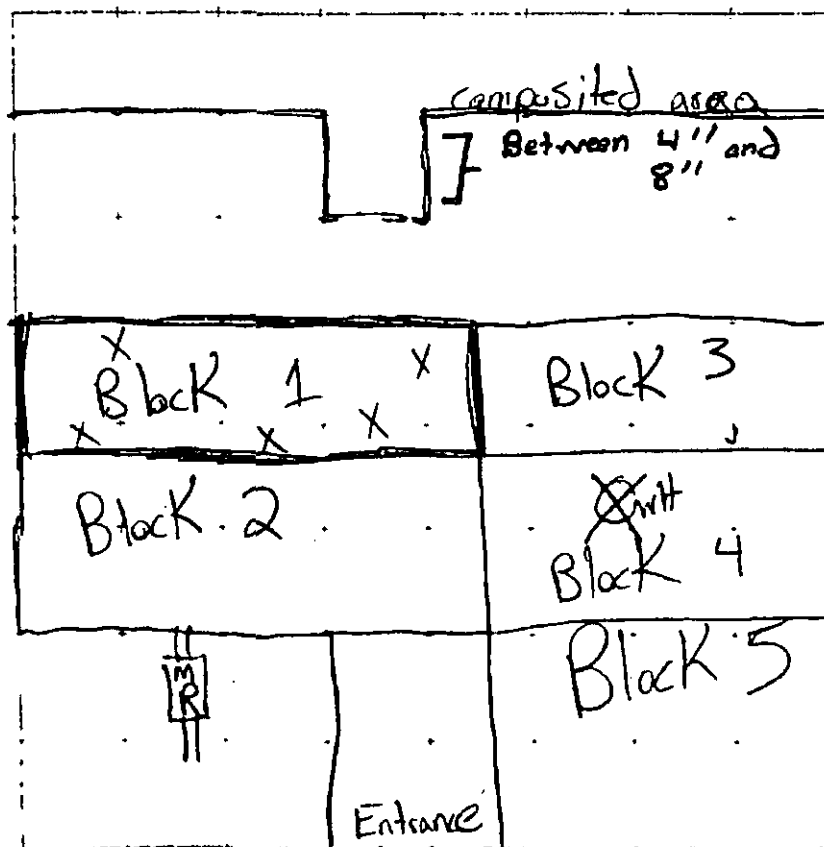 composited area
Between 4" and
8"
X
X
Block 1
X
X
X
Block 3
Block 2
Block 4
Block 5
MR
Entrance